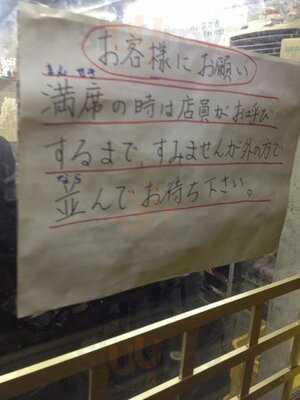 お客様にお願い
まんせき
満席の時は店員がお呼び
するまで、すみませんが外の方で
なら
並んでお待ち下さい。